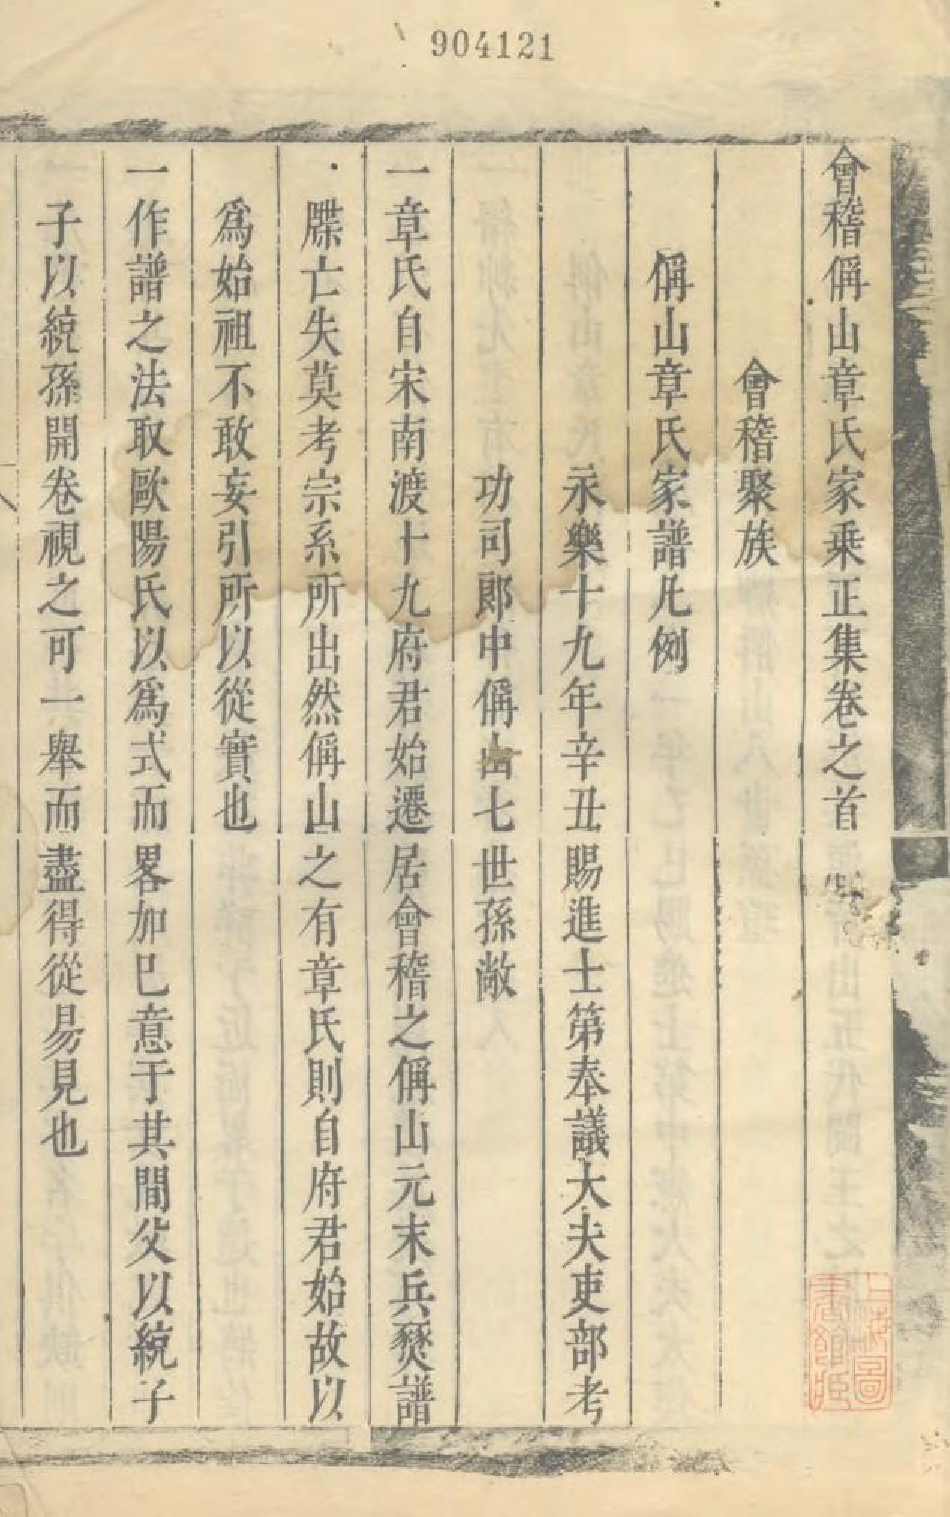 904121
會稽偁山章氏家乗正集卷之首
會稽聚族
偁山章氏家譜凡例
永樂十九年辛丑賜進士第奉議大夫吏部考
功司郎中偁山七世孫敞
一章氏自宋南渡十九府君始遷居會稽之偁山元末兵燹譜
牒亡失莫考宗系所出然偁山之有章氏則自府君始故以
爲始祖不敢妄引所以從實也
一作譜之法取歐陽氏以爲式而畧加巳意于其間父以統子
子以統孫開卷視之可一舉而盡得從易見也
上海圖書館藏